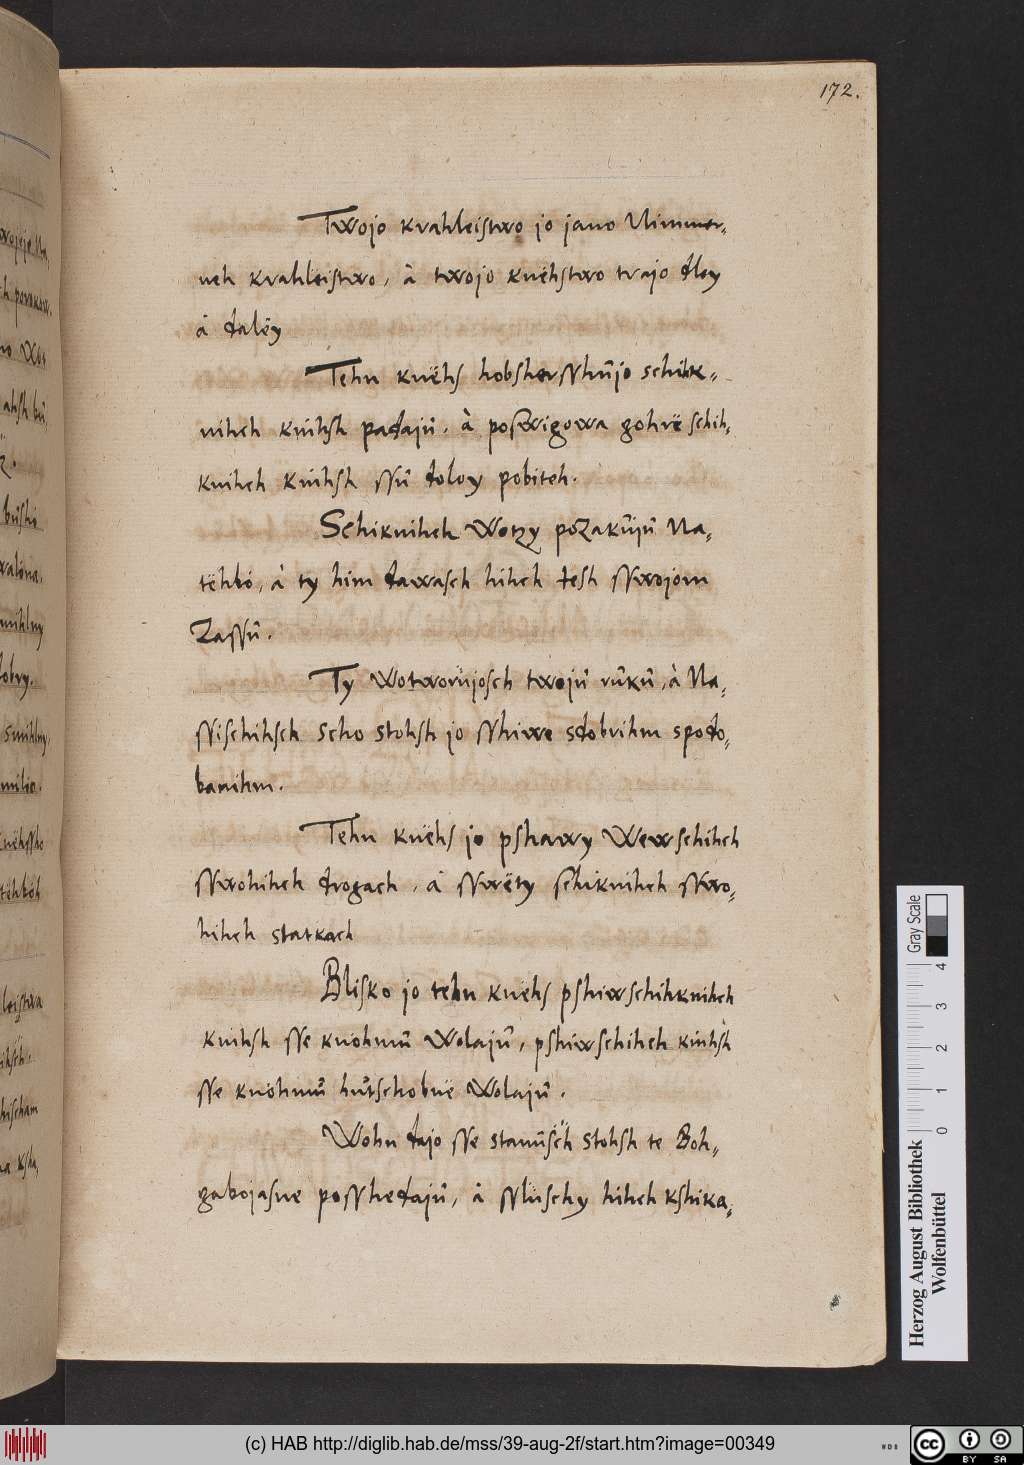 172.
Twojo krahleistwo jo jano Nimmer-
neh krahleistwo, à twojo knëhstwo trajo dley
à dalëy
Tehn knëhs hobsherſſhūjo schikk-
nihch knihsh padajū, à poſwigowa gohrë schih,
knihch knihsh ſſū doloy pobiteh.
Schiknihch Wotzy pozakūjū Na,
tëhbó, à ty him dawasch hihch jesh ſſwojom
Zaſſū.
Ty wotworūjosch twojū rūkū, à Na,
ſſischihsch scho stohsh jo ſſhiwe sdobrihm spodo,
banihm.
Tehn knëhs jo pshawy Wewschihch
ſſwohihch drogach, à ſſwëty schiknihch ſſwo,
hihch statkach
Blisko jo tehn knëhs pshiwschihknihch
knihsh ſſe knohmū Wolajū, pshiwschihch knihsh
ſſe knohmū hūtschobnë Wolajū.
Wohn dajo ſſe stanūsch stohsh te Boh,
gabojasne poſſhedajū, à ſſlūschy hihch kshika,
Gray Scale
0 1 2 3 4
Herzog August Bibliothek
Wolfenbüttel
(c) HAB http://diglib.hab.de/mss/39-aug-2f/start.htm?image=00349
cc BY SA